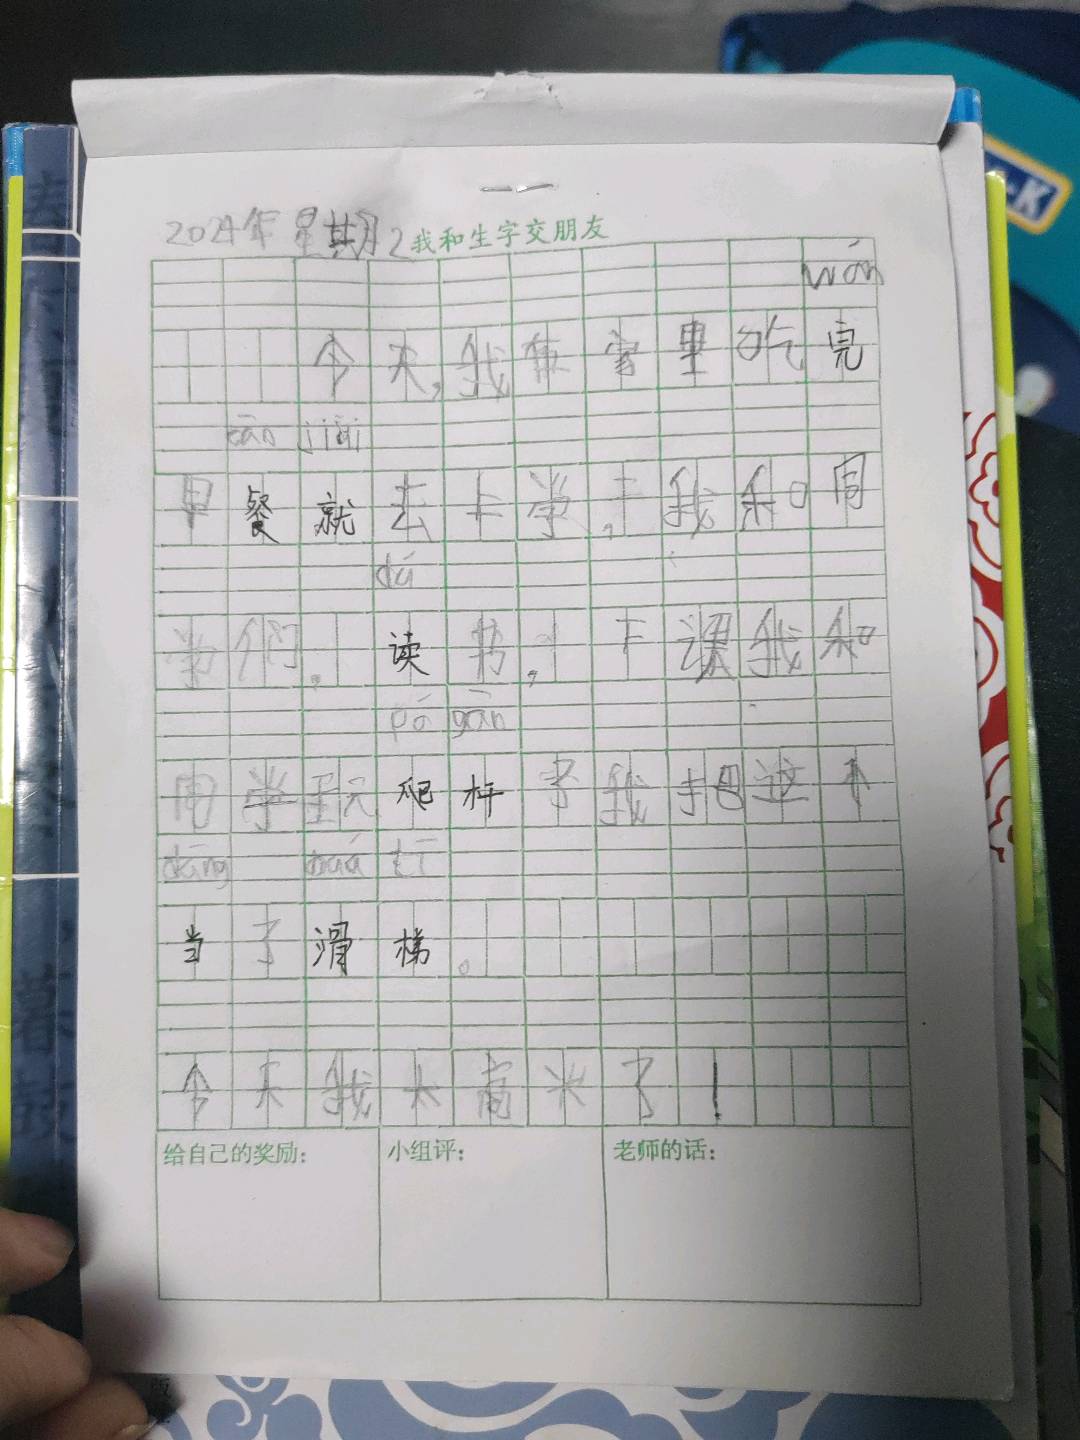 2024年 星期2 我和生字交朋友
wán
今天,我在家里吃完
cān jiù
早餐就去上学,上我和同
dú
学们,读书,下课我和
pá gān
同学玩爬杆了我把这个
dāng huá tī
当了滑梯。
今天我太高兴了!
给自己的奖励: 小组评: 老师的话: